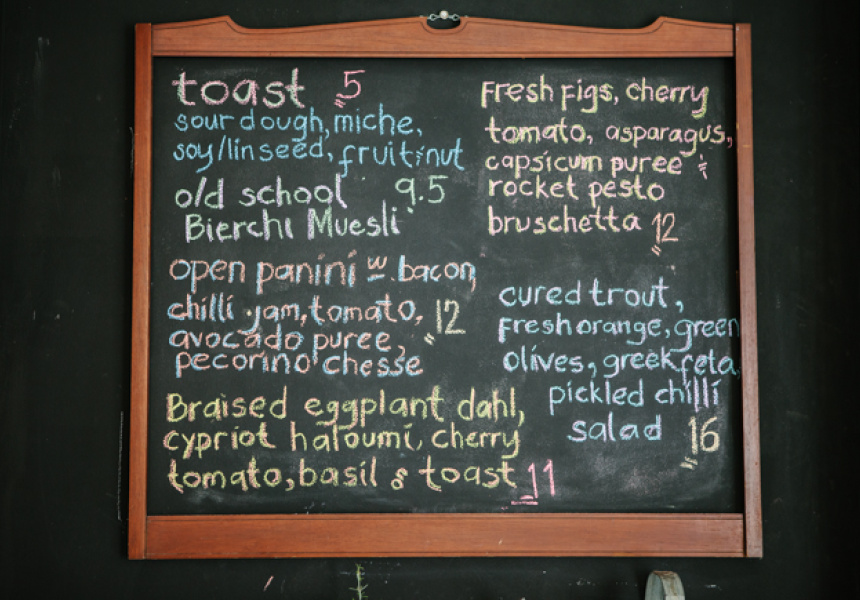 toast 5
sourdough, miche,
soy/linseed, fruit & nut
old school 9.5
Bierchi Muesli
open panini w. bacon,
chilli jam, tomato, 12
avocado puree,
pecorino chesse
Braised eggplant dahl,
cypriot haloumi, cherry
tomato, basil & toast 11
Fresh figs, cherry
tomato, asparagus,
capsicum puree &
rocket pesto
bruschetta 12
cured trout,
fresh orange, green
olives, greek feta,
pickled chilli
salad 16